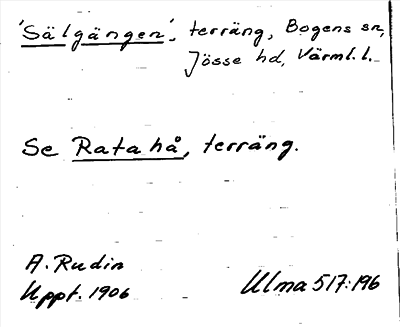 'Sälgängen', terräng, Bogens sn,
Jösse hd, Värml. l.
Se Ratahå, terräng.
A. Rudin
Uppt. 1906
Ulma 517:196